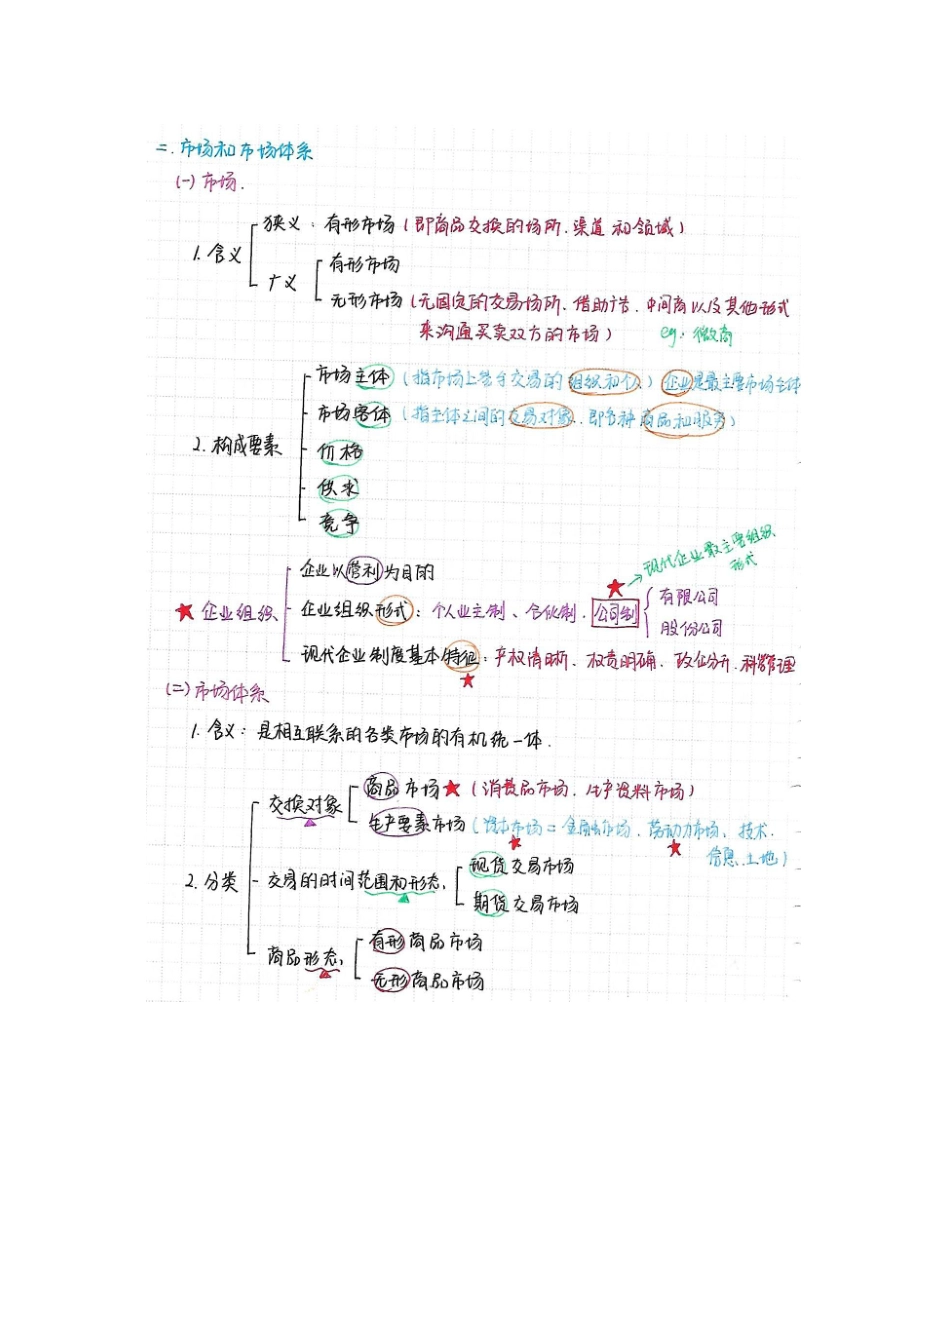 二.市场和市场体系
(一)市场.
1.含义
狭义:有形市场(即商品交换的场所.渠道和领域)
广义
有形市场
无形市场(无固定的交易场所、借助广告.中间商以及其他形式
来沟通买卖双方的市场) eg:微商
2.构成要素
市场主体(指市场上参与交易的组织和个人)企业是最主要市场主体
市场客体(指主体之间的交易对象.即各种商品和服务)
价格
供求
竞争
→现代企业最主要组织
形式
★企业组织
企业以营利为目的
企业组织形式:个人业主制、合伙制.公司制
有限公司
股份公司
现代企业制度基本特征:产权清晰.权责明确.政企分开.科学管理
(二)市场体系
1.含义:是相互联系的各类市场的有机统一体.
2.分类
交换对象
商品市场★(消费品市场.生产资料市场)
生产要素市场(资本市场=金融市场.劳动力市场、技术.
信息.土地)
交易的时间范围和形态,
现货交易市场
期货交易市场
商品形态,
有形商品市场
无形商品市场